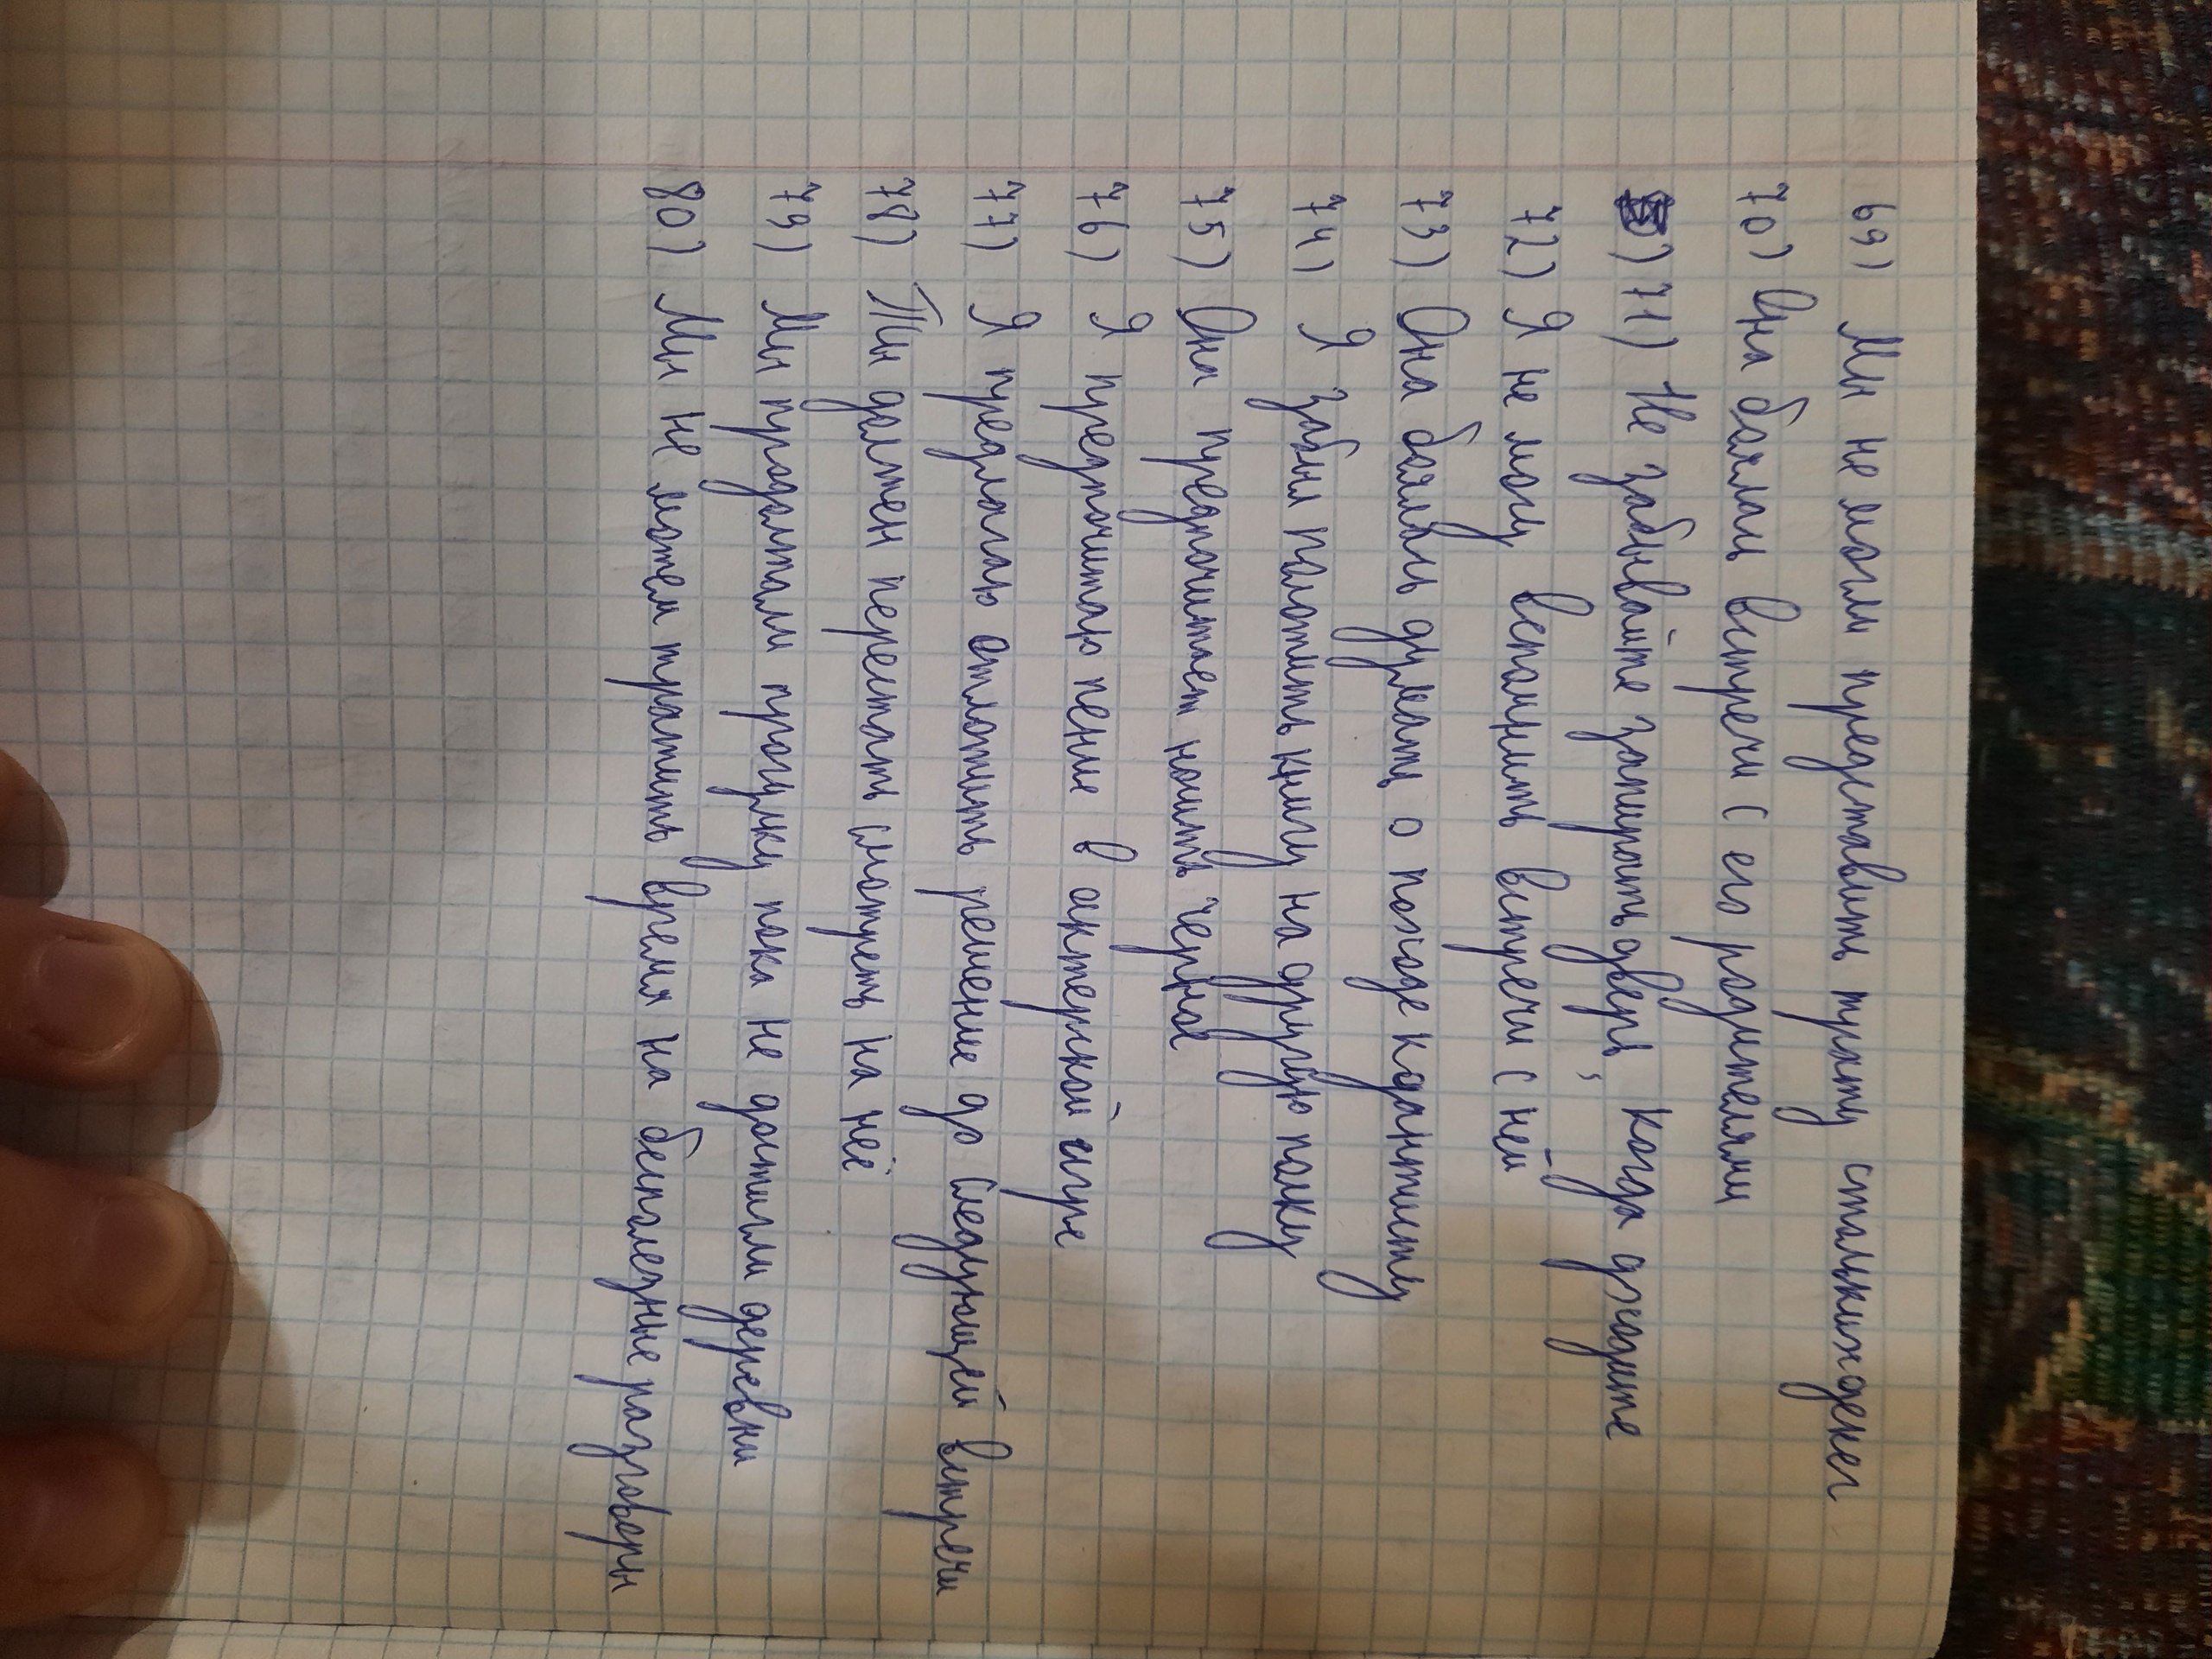 69) Мы не могли представить трату стольких денег
70) Она боялась встречи с его родителями
71) Не забывайте запирать дверь, когда уходите
72) Я не могу вспомнить встречи с ней
73) Она боялась думать о походе к дантисту
74) Я забыл положить книгу на другую полку
75) Она предпочитает носить черное
76) Я предпочитаю пение в актерской игре
77) Я предлагаю отложить решение до следующей встречи
78) Ты должен перестать смотреть на неё
79) Мы продолжали прогулку пока не достигли деревни
80) Мы не можем тратить время на бесполезные разговоры